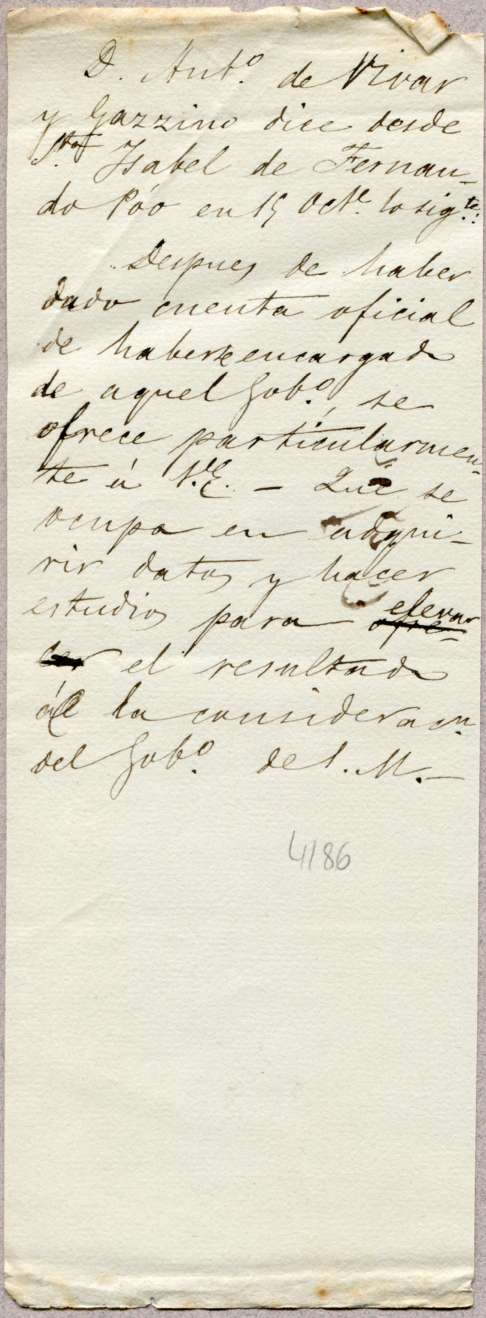 D. Ant.º de Vivar
y Gazzino dice desde
Sta Ysabel de Fernan-
do Póo en 15 Oct.e lo sig.te:
Despues de haber
dado cuenta oficial
de haberse encargado
de aquel Gob.º, se
ofrece particularmen-
te á V.E. – Que se
ocupa en adqui-
rir datos y hacer
estudios para elevar
ofre-
cer el resultado
á la consideracn.
del Gob.º de S. M.–
4186